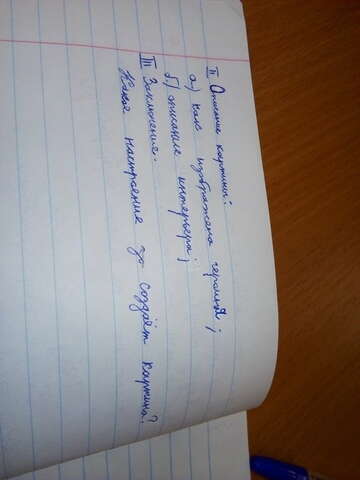 II Описание картины:
а) как изображена героиня;
б) описание интерьера;
III Заключение.
Какое настроение создаёт картина?